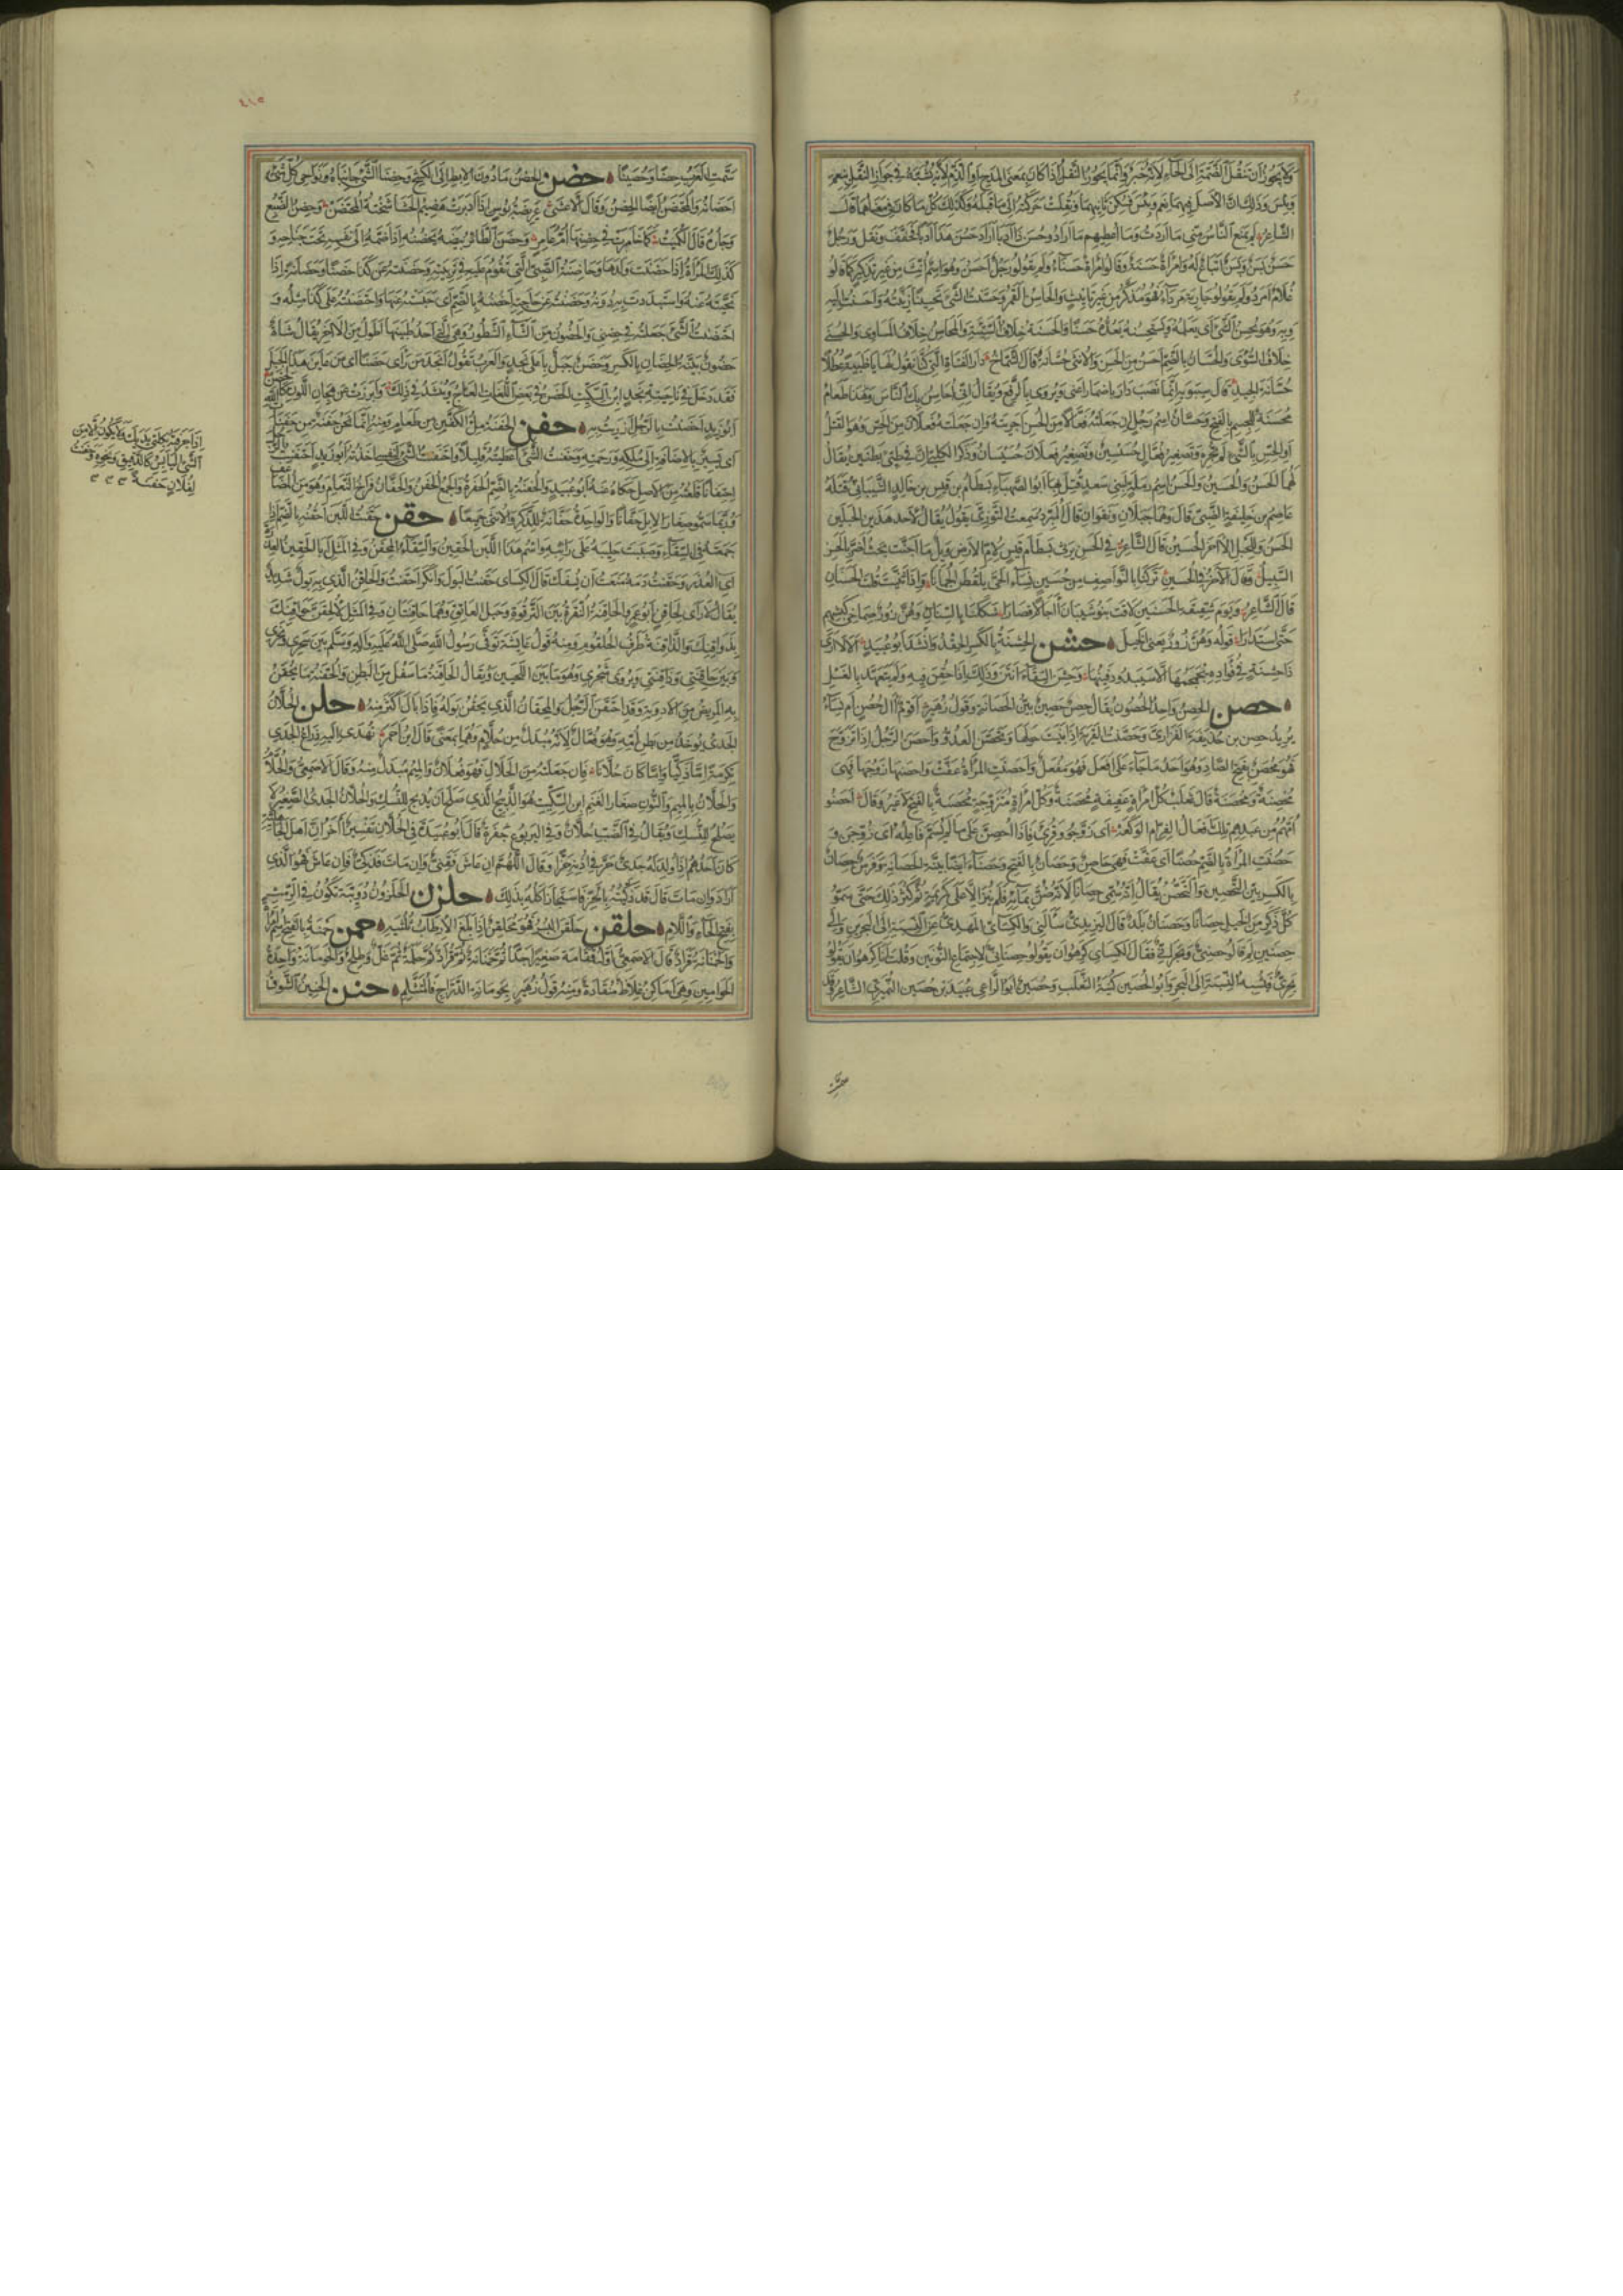 ولا يجوز أن تنقل الضمة إلى الحاء لأنه خبر وإنما يجوز النقل إذا كان بمعنى المدح أو الذم لأنه يشبه في جواز النقل بنعم
وبئس وذلك أن الأصل فيهما نعم وبئس فسكن ثانيهما ونقلت حركته إلى ما قبله وكذلك كل ما كان في معناهما قال
الشاعر لم يمنع الناس مني ما أردت وما أعطيهم ما أرادوا حسن ذا أدبا أراد حسن هذا أدبا فخفف ونقل ورجل
حسن بسن وبسن اتباع له وامرأة حسنة وقالوا امرأة حسناء ولم يقولوا رجل أحسن وهو اسم أنث من غير تذكير كما قالوا
غلام أمرد ولم يقولوا جارية مرداء فهو مذكر من غير تأنيث والحاسن القمر وحسنت الشيء تحسينا زينته وأحسنت إليه
وبه وهو يحسن الشيء أي يعلمه ويستحسنه يعده حسنا والحسنة خلاف السيئة والمحاسن خلاف المساوي والحسنى
خلاف السوءى والحسان بالضم أحسن من الحسن والأنثى حسانة قال الشماخ دار الفتاة التي كنا نقول لها يا ظبية عطلا
حسانة الجيد قال سيبويه إنما نصب دار بإضمار أعني ويروى بالرفع ويقال إني أحاسن بك الناس وهذا طعام
محسنة للجسم بالفتح وحسان اسم رجل إن جعلته فعالا من الحسن أجريته وإن جعلته فعلان من الحس وهو القتل
أو الحس بالشيء لم تجره وتصغير فعال حسيسين وتصغير فعلان حسيسان وذكر الكلبي أن في طيئ بطنين يقال
لهما الحسن والحسين والحسن اسم رملة لبني سعد قتل بها أبو الصهباء بسطام بن قيس بن خالد الشيباني قتله
عاصم بن خليفة الضبي قال وهما جبلان أو نقوان قال المبرد سمعت التوزي يقول يقال لأحد هذين الجبلين
الحسن وللجبل الآخر الحسين قال الشاعر في الحسن يرثي بسطام بن قيس لأم الأرض ويل ما أجنت بحيث أضر بالحسن
السبيل وقال الآخر في الحسين تركنا بالنواصف من حسين نساء الحي يلقطن الجمانا وإذا ثنيت قلت الحسنان
قال الشاعر ويوم شقيقة الحسنين لاقت بنو شيبان آجالا قصارا شككنا بالسنان وهن زور صماخي كبشهم
حتى استدارا قوله وهن زور يعني الخيل حشن الحشنة بالكسر الحقد وأنشد أبو عبيد ألا لا أرى
ذا حشنة في فؤاده يجمجمها إلا سيبدو دفينها وحشن السقاء أنتن وذلك إذا حقن فيه ولم يتعهد بالغسل
حصن الحصن واحد الحصون يقال حصن حصين بين الحصانة وقول زهير أقوم آل حصن أم نساء
يريد حصن بن حذيفة الفزاري وحصنت القرية إذا بنيت حولها وتحصن العدو وأحصن الرجل إذا تزوج
فهو محصن بفتح الصاد وهو أحد ما جاء على أفعل فهو مفعل وأحصنت المرأة عفت وأحصنها زوجها فهي
محصنة ومحصنة قال ثعلب كل امرأة عفيفة محصنة ومحصنة وكل امرأة متزوجة محصنة بالفتح لا غير وقال أحصنوا
أمهم من عبدهم تلك أفعال القزام الوكعه أي زوجوا وقرئ فإذا أحصن على ما لم يسم فاعله أي زوجن و
حصنت المرأة بالضم حصنا أي عفت فهي حاصن وحصان بالفتح وحصناء أيضا بينة الحصانة وفرس حصان
بالكسر بين التحصين والتحصن يقال إنه سمي حصانا لأنه ضن بمائه فلم ينز إلا على كريمة ثم كثر ذلك حتى سموا
كل ذكر من الخيل حصانا وحصنان بلد قال اليزيدي سألني والكسائي المهدي عن النسبة إلى البحرين وإلى
حصنين لم قالوا حصني وبحراني فقال الكسائي كرهوا أن يقولوا حصناني لاجتماع النونين وقلت أنا كرهوا أن يقولوا
بحري فيشبه النسبة إلى البحر وأبو الحصين كنية الثعلب وحصين أبو الراعي عبيد بن حصين النميري الشاعر وقد
٤١٥
سمت العرب حصنا وحصينا حضن الحضن ما دون الإبط إلى الكشح وحضنا الشيء جانباه ونواحي كل شيء
أحضانه والمحتضن أيضا الحضن وقال الأعشى عريضة بوص إذا أدبرت هضيم الحشا شختة المحتضن وحضن الضبع
وجاره قال الكميت كما خامرت في حضنها أم عامر وحضن الطائر بيضه يحضنه إذا ضمه إلى نفسه تحت جناحه و
كذلك المرأة إذا حضنت ولدها وحاضنة الصبي التي تقوم عليه في تربيته وحضنته عن كذا حضنا وحضانة إذا
نحيته عنه واستبددت به دونه وحضنته عن حاجته أحضنه بالضم أي حبسته عنها واحتضنته عن كذا مثله و
احتضنت الشيء جعلته في حضني والحضون من الشاء الشطون وهي التي أحد طبييها أطول من الآخر يقال شاة
حضون بينة الحضان بالكسر وحضن جبل بأعلى نجد والعرب تقول أنجد من رأى حضنا أي من عاين هذا الجبل
فقد دخل في ناحية نجد ابن السكيت الحضن في بعض اللغات العاج وينشد في ذلك وأبرزت عن هجان اللون كأنه
أبو زيد أحضنت بالرجل أزريت به حفن الحفنة ملء الكفين من طعام ومنه إنما نحن حفنة من حفنات
أي يسير بالإضافة إلى ملكه ورحمته وحفنت الشيء أعطيته قليلا واحتفنت الشيء لنفسي أخذته أبو زيد احتفنت
احتفانا قلعته من الأصل حكاه عنه أبو عبيد والحفنة بالضم الحفرة والجمع الحفن والحفان فراخ النعام وهو من المضاعف
وربما سموا صغار الإبل حفانا والواحدة حفانة للذكر والأنثى جميعا حقن حقنت اللبن أحقنه بالضم إذا
جمعته في السقاء وصببت حليبه على رائبه واسم هذا اللبن الحقين والسقاء المحقن وفي المثل أبى الحقين العذرة
أي العذر وحقنت دمه منعت أن يسفك قال الكسائي حقنت البول وأنكر أحقنت والحاقن الذي به بول شديد
يقال لا رأي لحاقن أبو عمرو الحاقنة النقرة بين الترقوة وحبل العاتق وهما حاقنتان وفي المثل لألحقن حواقنك
بذواقنك والذاقنة طرف الحلقوم ومنه قول عائشة توفي رسول الله صلى الله عليه وآله وسلم بين سحري ونحري
وبين حاقنتي وذاقنتي ويروى شجري وهو ما بين اللحيين ويقال الحاقنة ما سفل من البطن والحقنة ما يحقن
به المريض من الأدوية وقد احتقن الرجل والمحقان الذي يحقن بوله فإذا بال أكثر منه حلن الحلان
الجدي يؤخذ من بطن أمه وهو فعال لأنه مبدل من حلام وهما بمعنى قال ابن أحمر تهدى إليه ذراع الجدي
تكرمة إما ذكيا وإما كان حلانا فإن جعلته من الحلال فهو فعلان والميم مبدل منه وقال الأصمعي والحلام
والحلان بالميم والنون صغار الغنم ابن السكيت هو الذبيح الذي يصلح أن يذبح للنسك والحلان الجدي الصغير لا
يصلح للنسك ويقال في الضب حلان وفي اليربوع جفرة قال أبو عبيدة في الحلان تفسير آخر أن أهل الجاهلية
كان أحدهم إذا ولد له جدي حز في أذنه حزا وقال اللهم إن عاش فقني وإن مات فذكي فإن عاش فهو الذي
أراد وإن مات قال قد ذكيته بالحز فاستجاز أكله بذلك حلزن الحلزون دويبة تكون في الرمث
بفتح الحاء واللام حلقن حلقن البسر فهو محلقن إذا بلغ الإرطاب ثلثيه حمن حمنة بالفتح اسم امرأة
والحمنانة قراد قال الأصمعي أوله قمقامة صغير جدا ثم حمنانة ثم قراد ثم حلمة ثم عل وطلح والحومانة واحدة
الحوامين وهي أماكن غلاظ منقادة ومنه قول زهير بحومانة الدراج فالمتثلم حنن الحنين الشوق
إذا جرفته بكلتي يديك ولا يكون إلا من
الشيء اليابس كالدقيق ونحوه وحفنت
لفلان حفنة